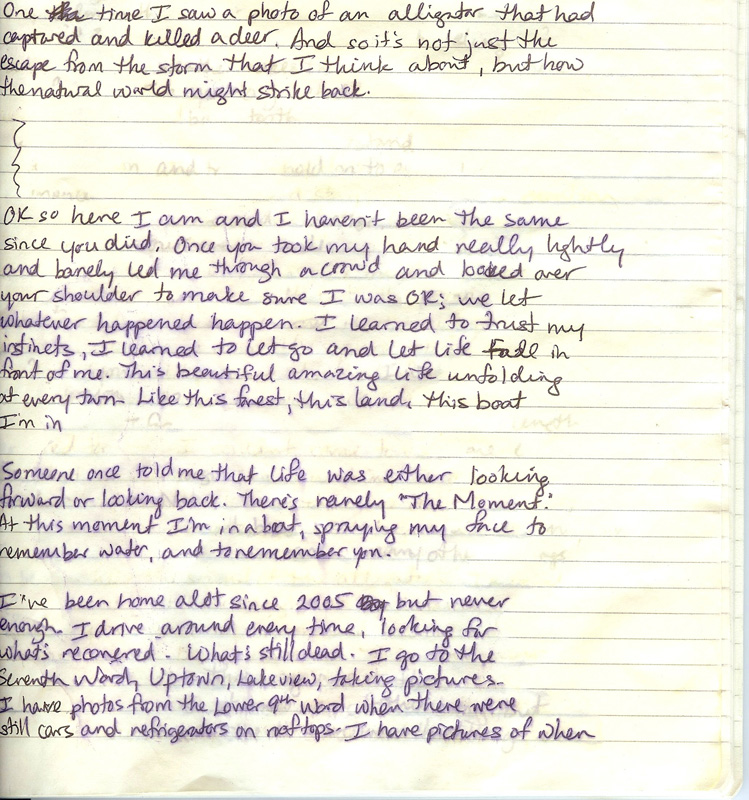 One time I saw a photo of an alligator that had
captured and killed a deer. And so it's not just the
escape from the storm that I think about, but how
the natural world might strike back.
OK so here I am and I haven't been the same
since you died. Once you took my hand really lightly
and barely led me through a crowd and looked over
your shoulder to make sure I was OK; we let
whatever happened happen. I learned to trust my
instincts, I learned to let go and let life fade in
front of me. This beautiful amazing life unfolding
at every turn. Like this forest, this land, this boat
I'm in
Someone once told me that life was either looking
forward or looking back. There's rarely "The Moment."
At this moment I'm in a boat, spraying my face to
remember water, and to remember you.
I've been home alot since 2005 but never
enough. I drive around every time, looking for
what's recovered. What's still dead. I go to the
Seventh Ward, Uptown, Lakeview, taking pictures.
I have photos from the Lower 9th Ward when there were
still cars and refrigerators on rooftops. I have pictures of when